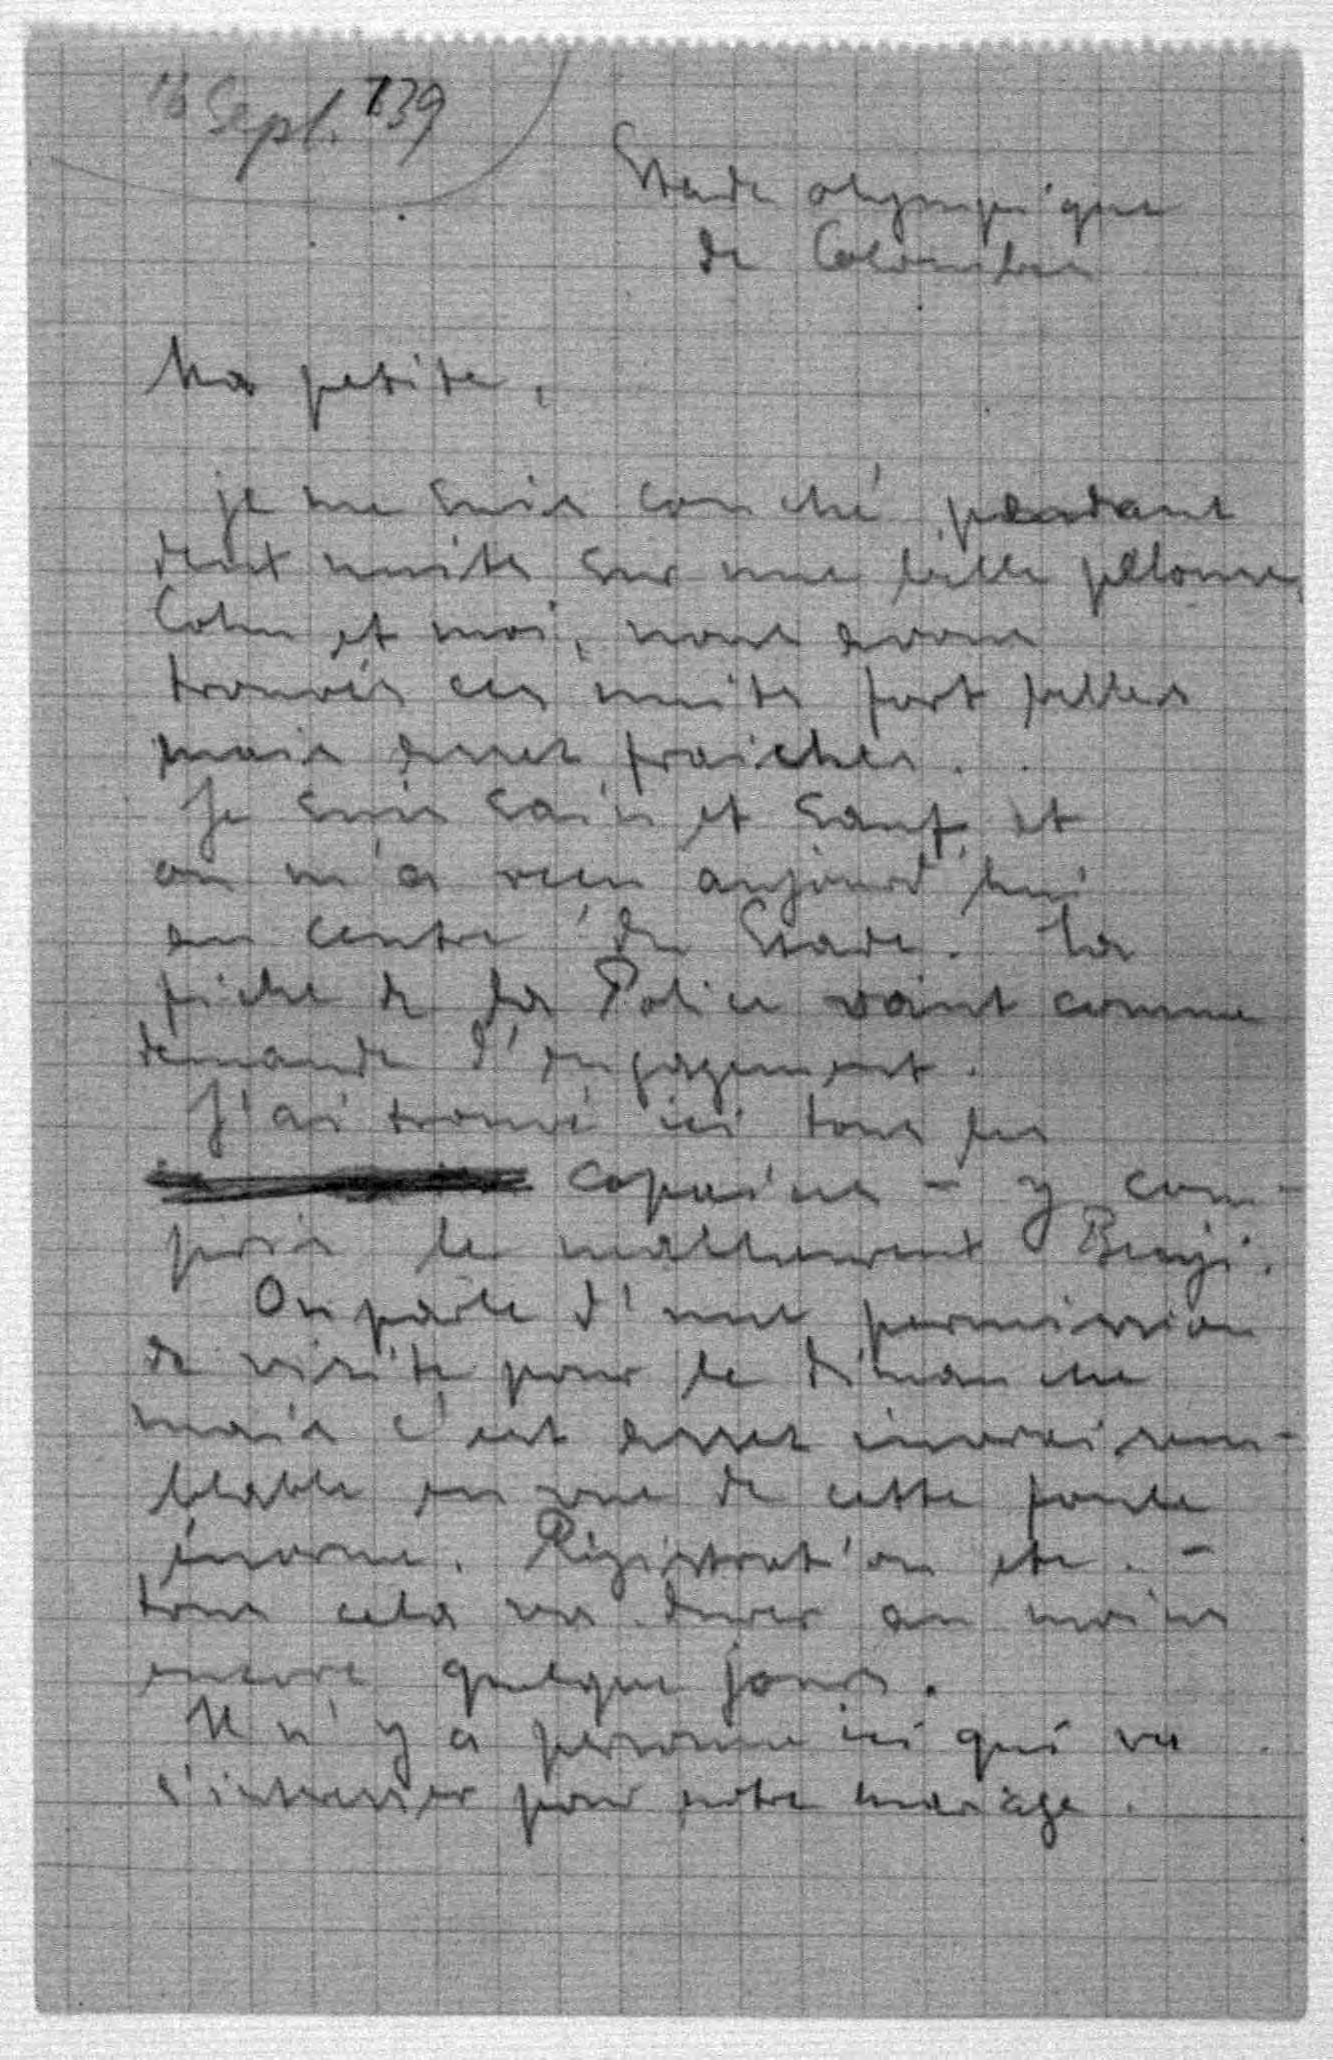 Sept. 39
Stade olympique
de Colombes
Ma petite,
je me suis couché pendant
deux nuits sur une belle pelouse,
Cohn et moi, nous avons
trouvés ces nuits fort belles
mais assez fraiches.
Je suis sain et sauf et
on m'a reçu aujourd'hui
au centre du Stade. La
fiche de la Police vaint comme
demande d'engagement.
J'ai trouvé ici tous les
copains - y com-
pris le malheureux Benji.
On parle d'une permission
de visite pour le dimanche
mais c'est assez invraisem-
blable en vue de cette foule
énorme. Régistration etc. -
tous cela va durer au moins
encore quelque jours.
Il n'y a personne ici qui va
s'intéresser pour notre mariage.